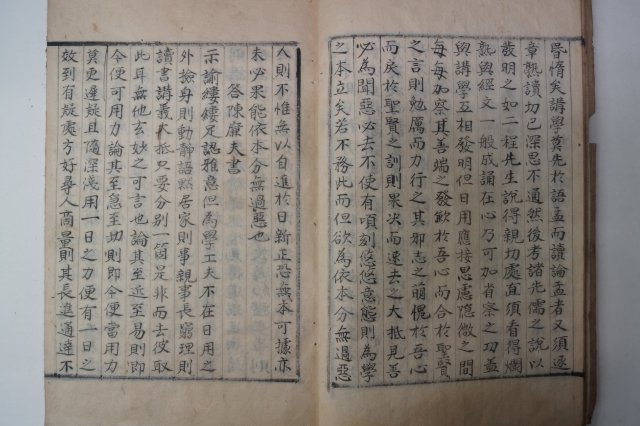 昏惰矣講學莫先於語孟而讀論孟者又須逐
章熟讀切己深思不通然後考諸先儒之說以
發明之如二程先生說得親切處直須看得爛
熟與經文一般成誦在心乃可加省察之功盖
與講學互相發明但日用應接思慮隱微之間
每每加察其善端之發歟於吾心而合於聖賢
之言則勉厲而力行之其邪志之萌愧於吾心
而戾於聖賢之訓則果决而速去之大抵見善
必爲聞惡必去不使有頃刻悠悠意態則爲學
之本立矣若不務此而但欲爲依本分無過惡
人則不惟無以自進於日新正恐無本可據亦
未必果能依本分無過惡也
答陳廉夫書
示諭縷縷足認雅意但為學工夫不在日用之
外撿身則動靜語默居家則事親事長窮理則
讀書講義大抵只要分别一箇是非而去彼取
此耳無他玄妙之可言也論其至近至易則即
今便可用力論其至急至切則即今便當用力
莫更遲疑且隨深淺用一日之力便有一日之
效到有疑處方好尋人商量則其長進通達不